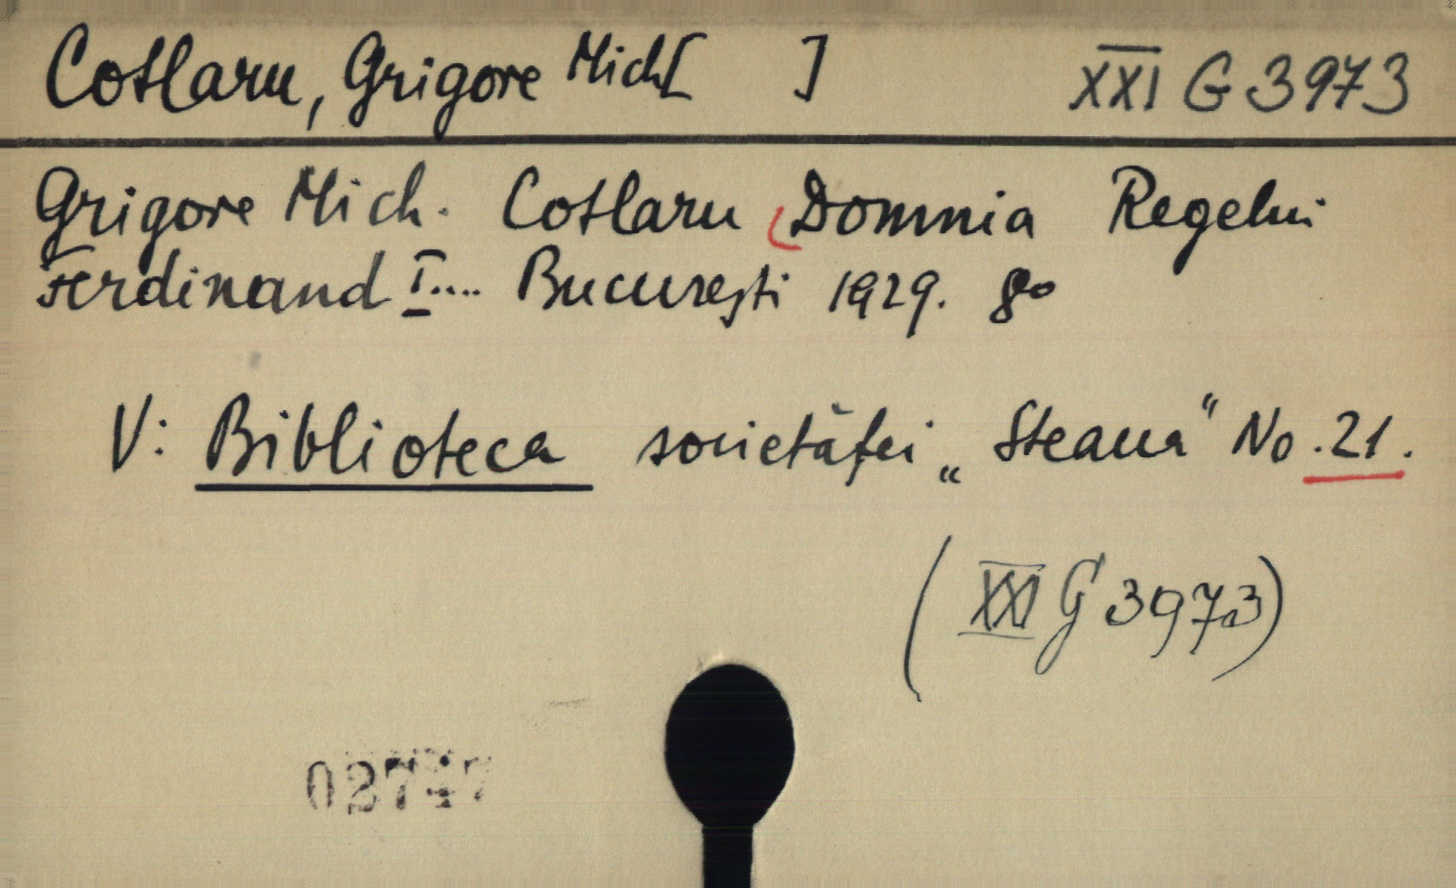 Cotlaru, Grigore Mich[ ] XXI G 3973
Grigore Mich. Cotlaru Domnia Regelui
Ferdinand I.... București 1929. 8o
V: Biblioteca societăței „Steaua“ No. 21.
(XXI G 3973)
02747